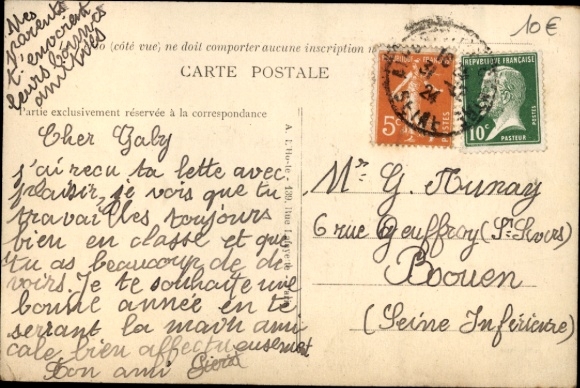 Mes
parents
t'envoient
leurs bonnes
amitiés
10€
(côté vue) ne doit comporter aucune inscription
CARTE POSTALE
Partie exclusivement réservée à la correspondance
RÉPUBLIQUE FRANÇAISE
5c
10c
POSTES
PASTEUR
31
24
SEINE
Cher Gaby
j'ai reçu ta lette avec
plaisir, je vois que tu
travailles toujours
bien en classe et que
tu as beaucoup de de
voirs. Je te souhaite une
bonne année en te
serrant la main ami
cale bien affectueusement
Ton ami Pierre
A. L'Hoste - 139, Rue Lafayette - Paris
Mr G. Aunay
6 rue Geuffroy (St Severs)
Rouen
(Seine Inférieure)